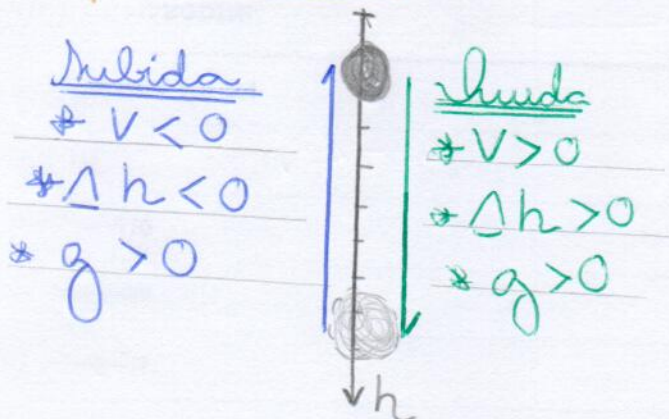 Subida
* V < 0
* Δh < 0
* g > 0
Queda
* V > 0
* Δh > 0
* g > 0
h